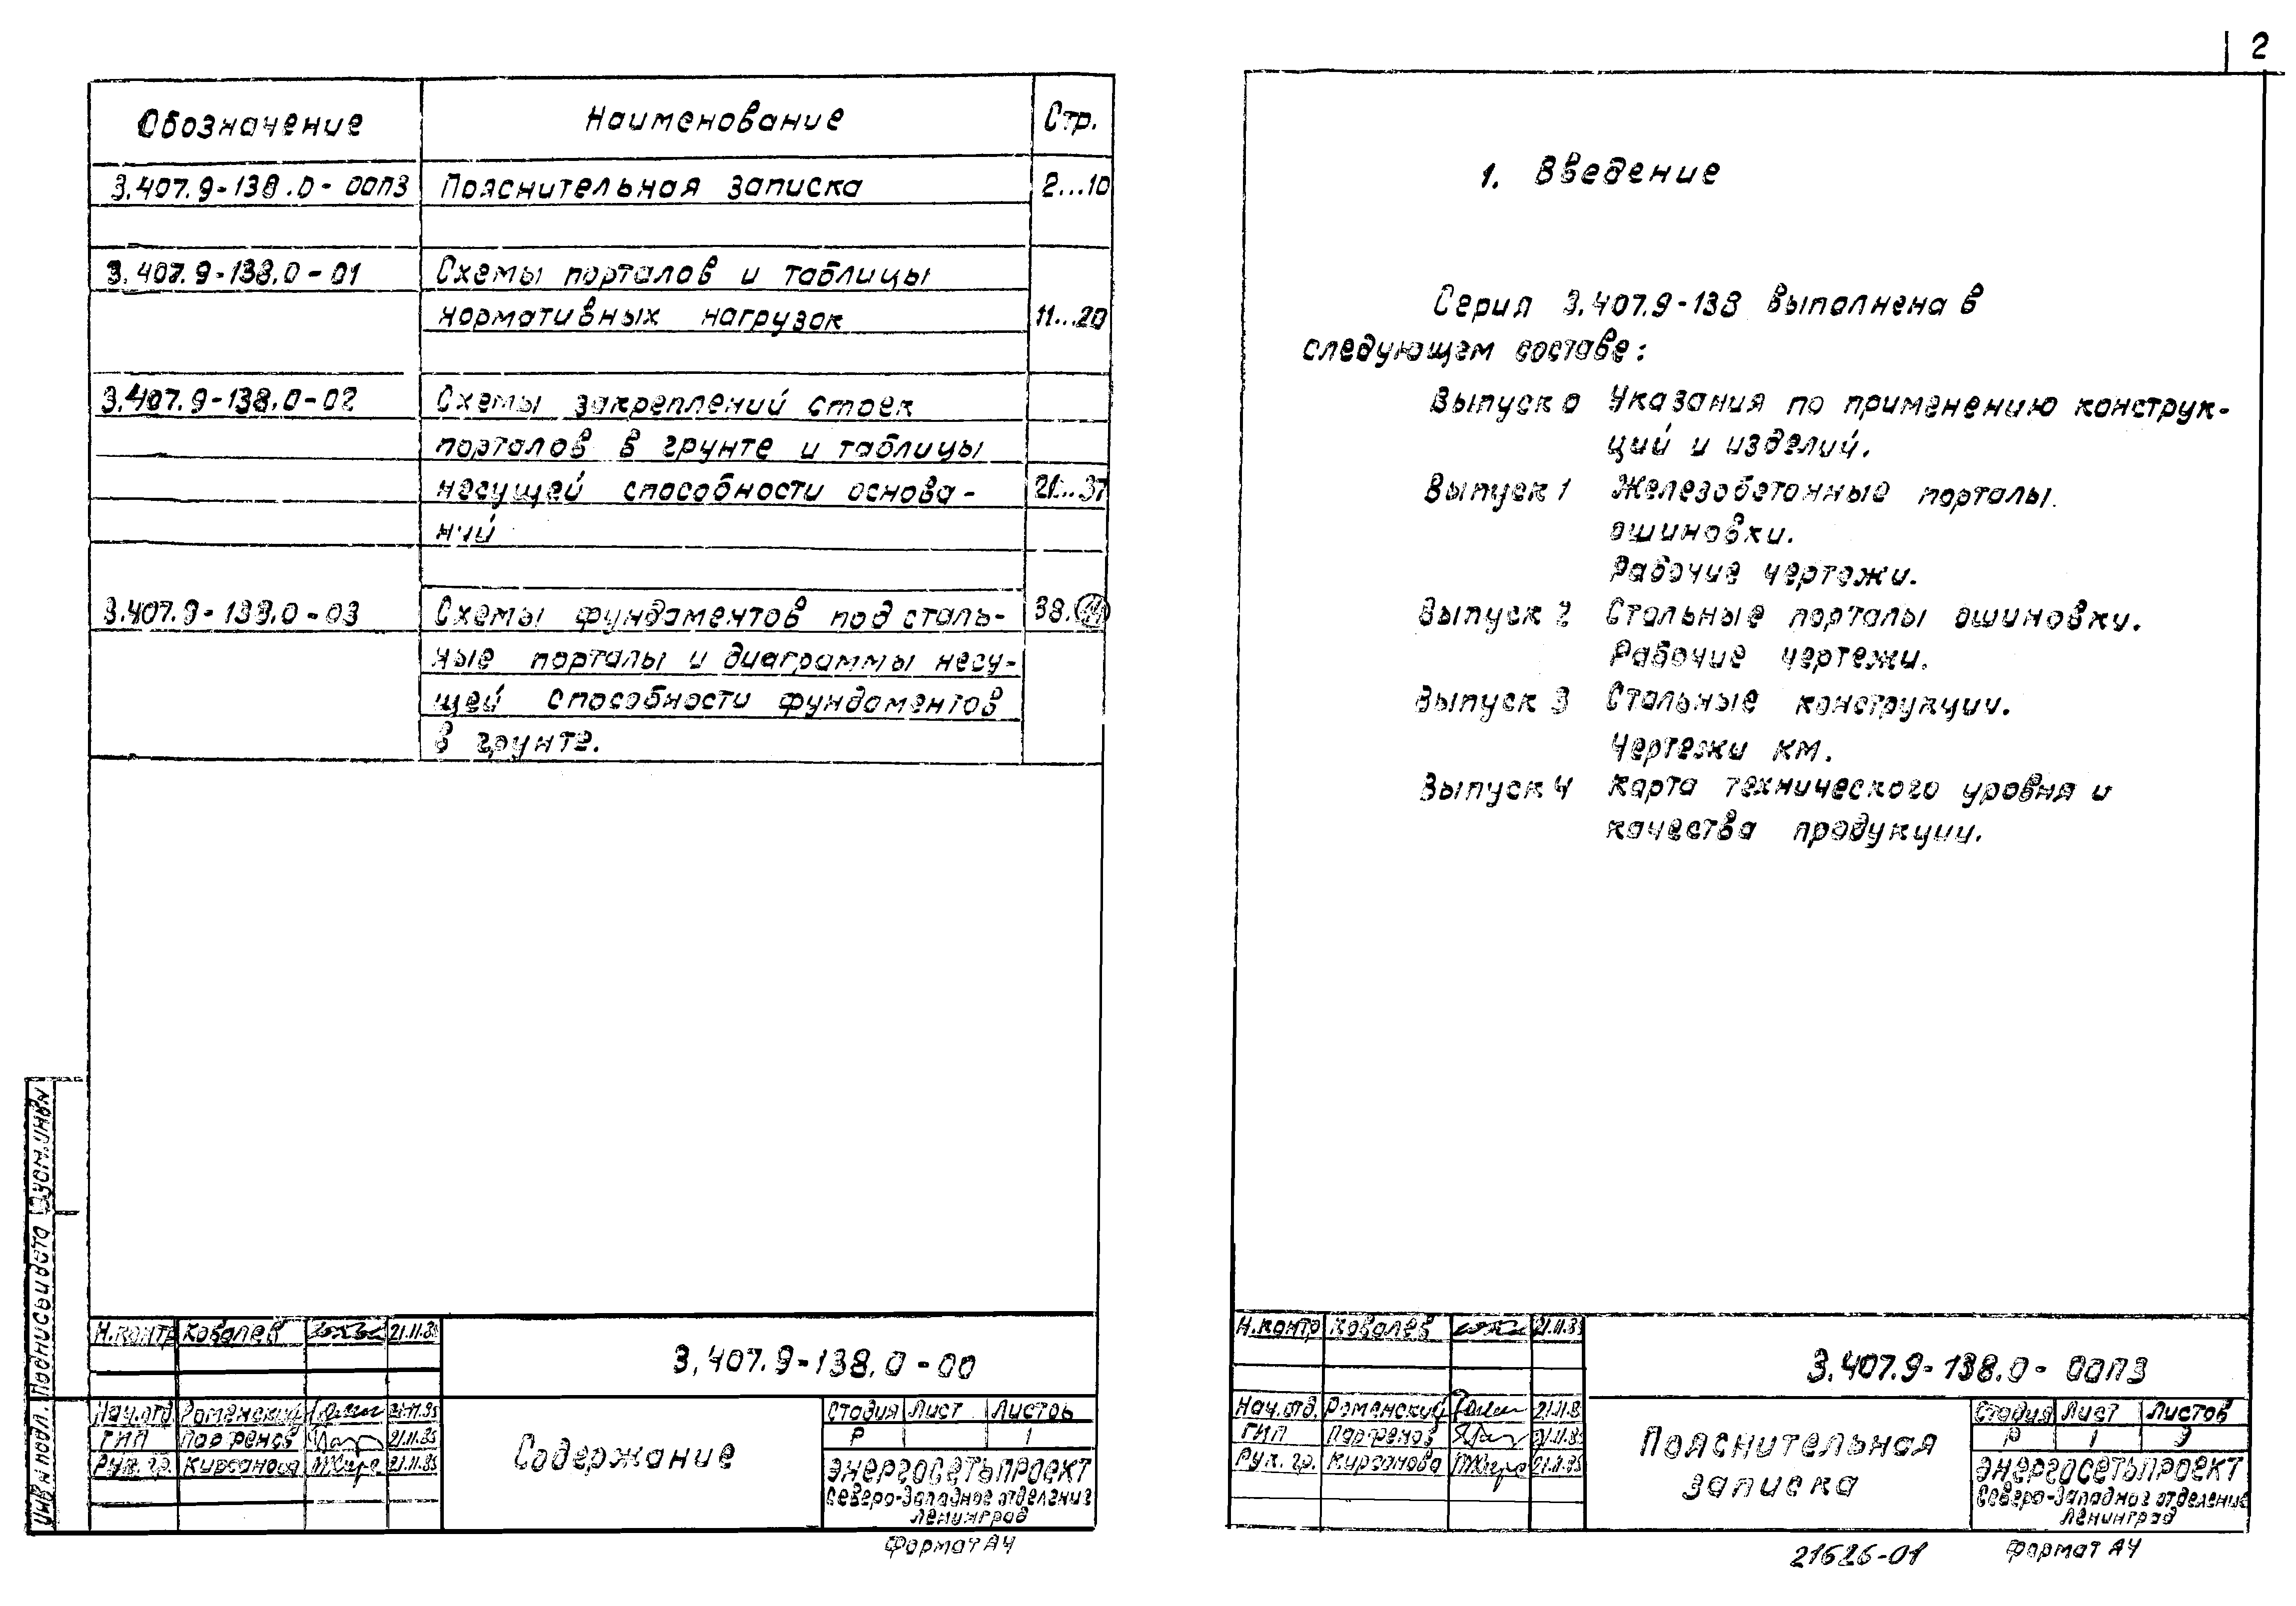 Обозначение Наименование Стр.
3.407.9-138.0-00ПЗ Пояснительная записка 2...10
3.407.9-138.0-01 Схемы порталов и таблицы
нормативных нагрузок 11...20
3.407.9-138.0-02 Схемы закреплений стоек
порталов в грунте и таблицы
несущей способности основа-
21...37
ний
3.407.9-138.0-03 Схемы фундаментов под сталь-
38.
ные порталы и диаграммы несу-
щей способности фундаментов
в грунте.
Инв.N подл. Подпись и дата Взам.инв.N
Н.контр Ковалев 21.11.85
3.407.9-138.0-00
Нач.отд. Роменский 21.11.85
ГИП Парфенов 21.11.85
Рук. гр. Кирсанова 21.11.85
Содержание
Стадия Лист Листов
Р 1
ЭНЕРГОСЕТЬПРОЕКТ
Северо-Западное отделение
Ленинград
Формат А4
2
1. Введение
Серия 3.407.9-138 выполнена в
следующем составе:
Выпуск 0 Указания по применению конструк-
ций и изделий.
Выпуск 1 Железобетонные порталы
ошиновки.
Рабочие чертежи.
Выпуск 2 Стальные порталы ошиновки.
Рабочие чертежи.
Выпуск 3 Стальные конструкции.
Чертежи КМ.
Выпуск 4 Карта технического уровня и
качества продукции.
Н.контр Ковалев 21.11.85
3.407.9-138.0-00ПЗ
Нач.отд. Роменский 21.11.85
ГИП Парфенов 21.11.85
Рук. гр. Кирсанова 21.11.85
Пояснительная
записка
Стадия Лист Листов
Р 1 9
ЭНЕРГОСЕТЬПРОЕКТ
Северо-Западное отделение
Ленинград
21626-01 Формат А4